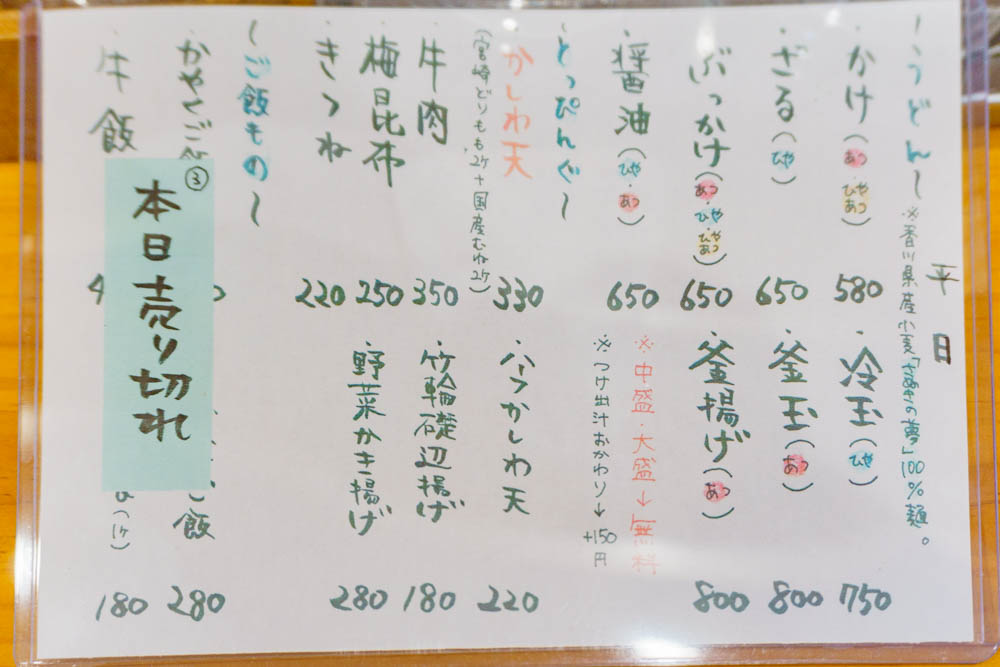 平日
〜うどん〜
※香川県産小麦「さぬきの夢」100%麺。
・かけ(あつ・ひやあつ) 580
・ざる(ひや) 650
・ぶっかけ(あつ・ひや・ひやあつ) 650
・醤油(ひや・あつ) 650
・冷玉(ひや) 750
・釜玉(あつ) 800
・釜揚げ(あつ) 800
※中盛・大盛→無料
※つけ出汁おかわり→+150円
〜とっぴんぐ〜
・かしわ天 330
(宮崎どりもも2ケ+国産むね2ケ)
・牛肉 350
・梅昆布 250
・きつね 220
・ハーフかしわ天 220
・竹輪磯辺揚げ 180
・野菜かき揚げ 280
〜ご飯もの〜
・かやくご飯
・牛飯
飯 280
(1ケ) 180
③
本日売り切れ